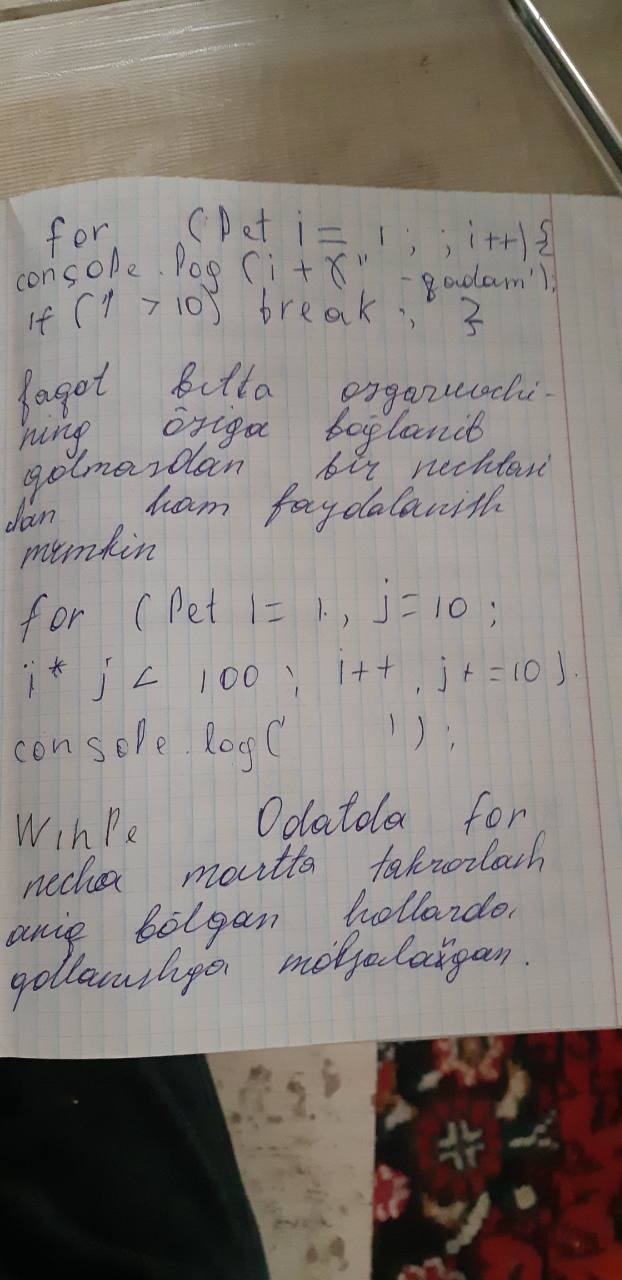 for (let i = 1; ; i++) {
console.log (i + " -qadam');
if (1 > 10) break ; }
faqat bitta ozgaruvchi-
ning õziga boğlanib
qolmasdan bir nechtasi
dan ham faydalanish
mumkin
for (let i = 1, j = 10 ;
i * j < 100 ; i++, j += 10).
console.log(' ');
Wihle Odatda for
necha martta takrorlash
aniq bõlgan hollarda,
qollanishga mõljalangan.